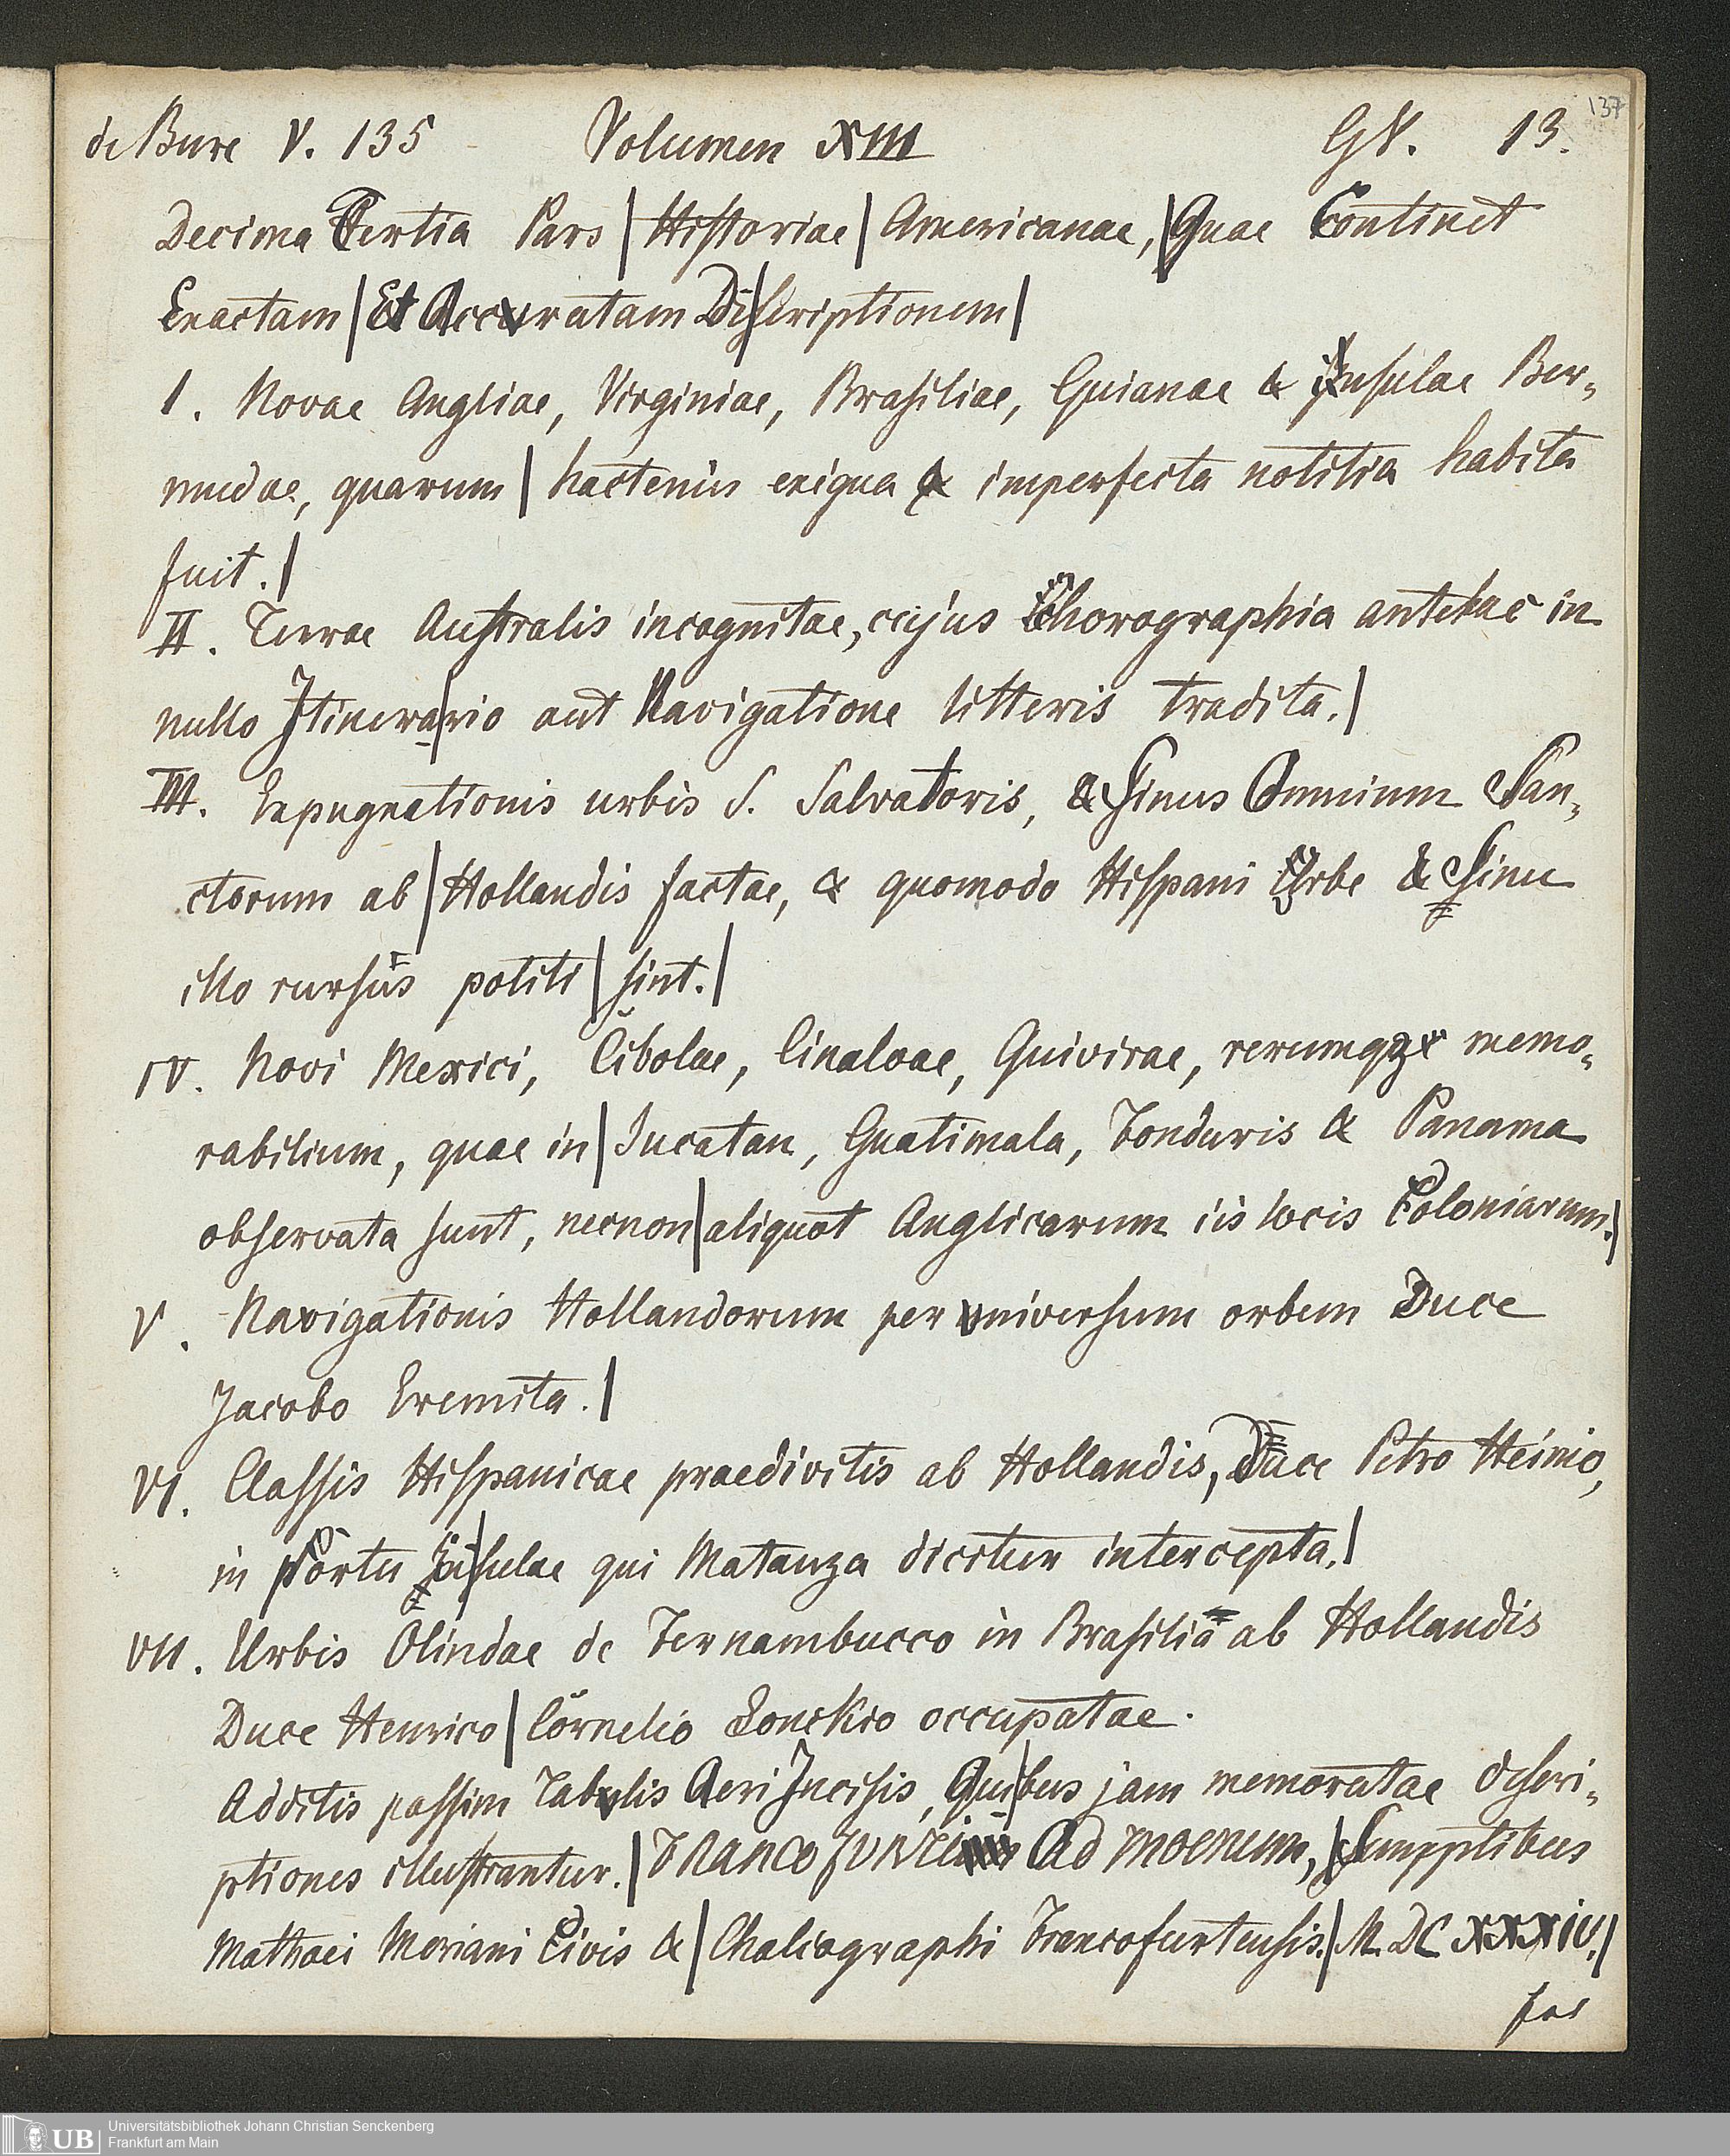 137
de Bure V. 135 Volumen XIII GV. 13.
Decima Tertia Pars | Historiae | Americanae, | Quae Continet
Exactam | Et Accuratam De|scriptionem |
I. Novae Angliae, Virginiae, Brasiliae, Guianae & Insulae Ber-
mudae, quarum | hactenùs exigua & imperfecta notitia habita
fuit. |
II. Terrae Australis incognitae, cujus Chorographia antehac in
nullo Itinera|rio aut Navigatione litteris tradita. |
III. Expugnationis urbis S. Salvatoris, & Sinus Omnium San-
ctorum ab | Hollandis factae, & quomodo Hispani Urbe & Sinu
illo rursùs potiti | sint. |
IV. Novi Mexici, Cibolae, Cinaloae, Quivirae, rerumq; memo-
rabilium, quae in | Jucatan, Guatimala, Fonduris & Panama
observata sunt, necnon | aliquot Anglicarum iis locis Coloniarum. |
V. Navigationis Hollandorum per universum orbem Duce
Jacobo Eremita. |
VI. Classis Hispanicae praedivitis ab Hollandis, Duce Petro Heinio,
in Portu In|sulae qui Matanza dicitur intercepta. |
VII. Urbis Olindae de Fernambucco in Brasiliâ ab Hollandis
Duce Henrico | Cornelio Lonckio occupatae.
Additis passim Tabulis Aeri Incisis, Qui|bus jam memoratae descri-
ptiones illustrantur. | Francofurti Ad Moenum, | Sumpptibus
Mathaei Meriani Civis & | Chalcographi Francofurtensis. | M. DC XXXIV. |
fol
Universitätsbibliothek Johann Christian Senckenberg
Frankfurt am Main
UB